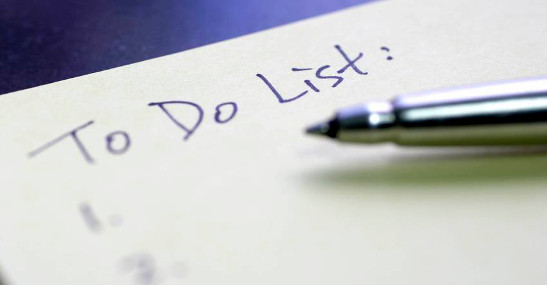 To Do List:
1.
2.